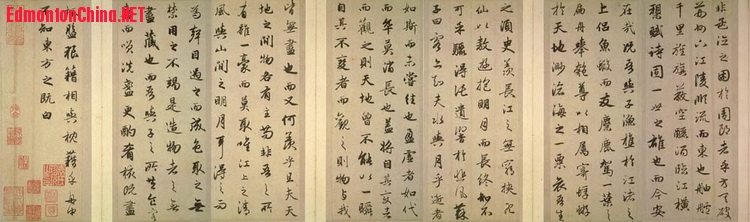 EdmontonChina.NET
非孟德之困於周郎者乎方其破
荊州下江陵順流而東也舳艫
千里旌旗蔽空釃酒臨江橫
槊賦詩固一世之雄也而今安
在哉況吾與子漁樵於江渚之
上侶魚蝦而友麋鹿駕一葉之
扁舟舉匏尊以相屬寄蜉蝣
於天地渺滄海之一粟哀吾生
之須臾羨長江之無窮挾飛
仙以遨遊抱明月而長終知不
可乎驟得託遺響於悲風蘇
子曰客亦知夫水與月乎逝者
如斯而未嘗往也盈虛者如代
而卒莫消長也蓋將自其變者
而觀之則天地曾不能以一瞬
自其不變者而觀之則物與我
皆無盡也而又何羨乎且夫天
地之間物各有主苟非吾之所
有雖一毫而莫取惟江上之清
風與山間之明月耳得之而
為聲目遇之而成色取之無
禁用之不竭是造物者之無
盡藏也而吾與子之所共食客
喜而笑洗盞更酌肴核既盡
杯盤狼籍相與枕藉乎舟中
不知東方之既白